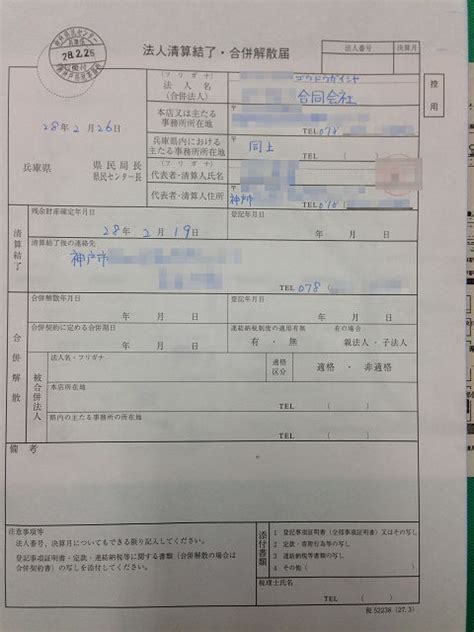 28.2.26
法人清算結了・合併解散届
法人番号
決算月
控用
28年2月26日
兵庫県
県民局長
県民センター長
(フリガナ)
ゴウドウガイシャ
法人名
(合併法人)
合同会社
本店又は主たる
事務所所在地
〒
TEL 078
兵庫県内における
主たる事務所所在地
〒
同上
TEL
(フリガナ)
代表者・清算人氏名
代表者・清算人住所
〒
神戸市
TEL 078
清算結了
残余財産確定年月日
28年2月19日
登記年月日
年 月 日
清算結了後の連絡先
神戸市
TEL 078
合併解散
合併解散年月日
年 月 日
登記年月日
年 月 日
合併契約に定める合併期日
年 月 日
連結納税制度の適用有無
有の場合
有・無
親法人・子法人
被合併法人
法人名・フリガナ
適格
区分
適格・非適格
本店所在地
TEL ( )
県内の主たる事務所の所在地
TEL ( )
備考
注意事項等
法人番号、決算月についてもできる限り記入してください。
登記事項証明書・定款・連結納税等に関する書類(合併解散の場合は
合併契約書)の写しを添付してください。
添付書類
1 登記事項証明書(全部事項証明書)又はその写し
2 定款・寄附行為等の写し
3 連結納税等書類の写し
4 その他( )
税理士氏名
税52238(27.3)